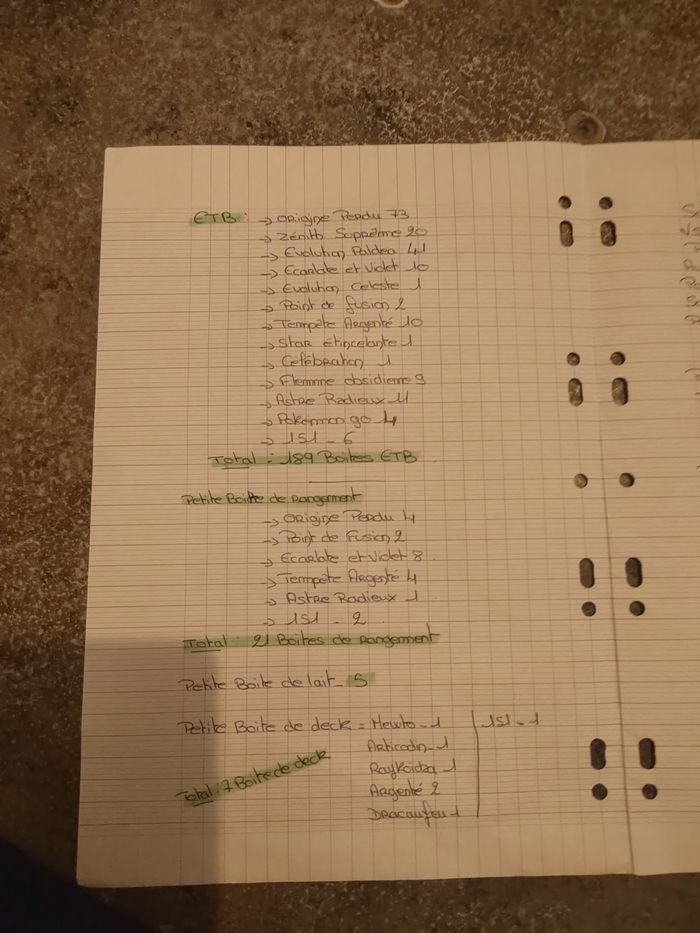 ETB: → Origine Perdu 73
→ Zénith Suprême 20
→ Evolution Paldea 41
→ Ecarlate et Violet 10
→ Evolution Celeste 1
→ Point de fusion 2
→ Tempête Argenté 10
→ Star étincelante 1
→ Celébration 1
→ Flemme obsidienne 9
→ Astre Radieux 11
→ Pokémon go 4
→ 151 - 6
Total : 189 Boites ETB
Petite Boite de rangement
→ Origine Perdu 4
→ Point de Fusion 2
→ Ecarlate et Violet 8
→ Tempête Argenté 4
→ Astre Radieux 1
→ 151 - 2
Total : 21 Boites de rangement
Petite Boite de lait - 5
Petite Boite de deck = Mewto - 1 | 151 - 1
Articodin - 1
Raykoidza 1
Argenté 2
Dracaufeu 1
Total : 7 Boite de deck